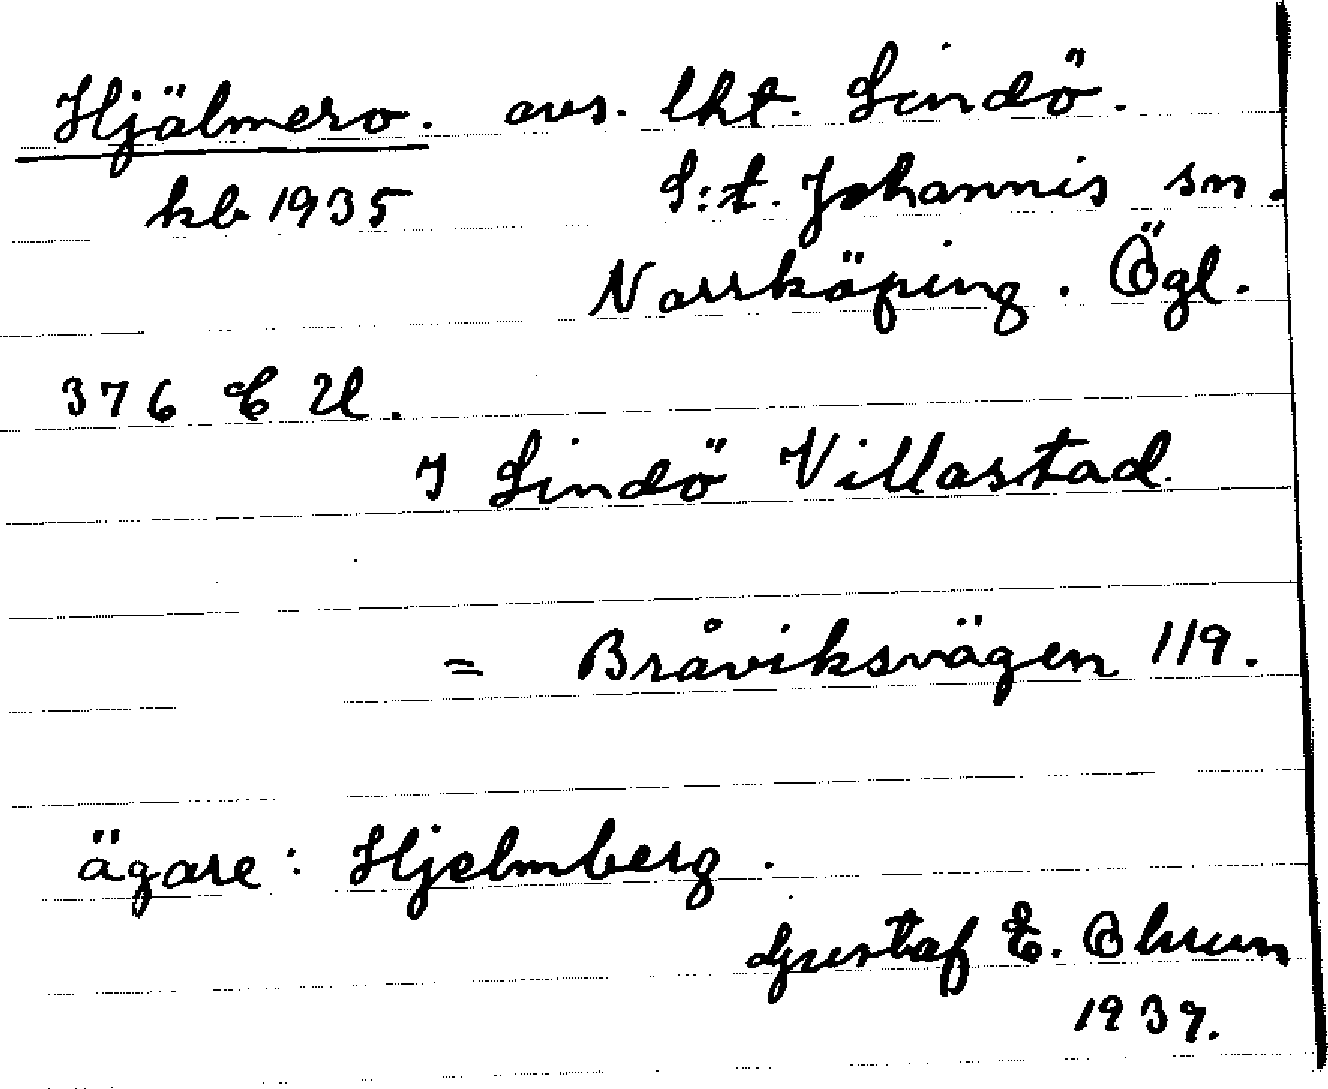 Hjälmero. avs. lht. Lindö.
kb 1935 S:t. Johannis sn.
Norrköping. Ögl.
376 C U.
I Lindö Villastad.
= Bråviksvägen 119.
ägare: Hjelmberg.
Gustaf E.
1937.